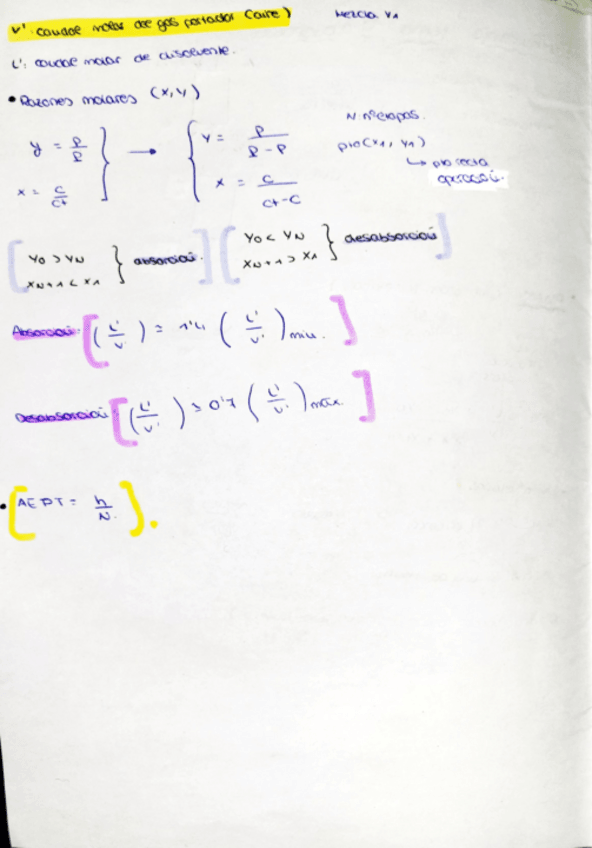 V': caudal molar del gas portador (aire)
Mezcla V1
L': caudal molar de disolvente.
• Razones molares (X,Y)
N: nº etapas.
y = p/P } → { Y = p/(P-p)
x = c/ct } { X = c/(ct-c)
pto (X1, Y1)
↳ pto recta
operación.
[ Y0 > YN
XN+1 < X1 } absorción. ]
[ Y0 < YN
XN+1 > X1 } desabsorción ]
Absorción: [ (L'/V') = 1'4 (L'/V')min. ]
Desabsorción: [ (L'/V') = 0'7 (L'/V')máx. ]
• [ AEPT = h/N. ].